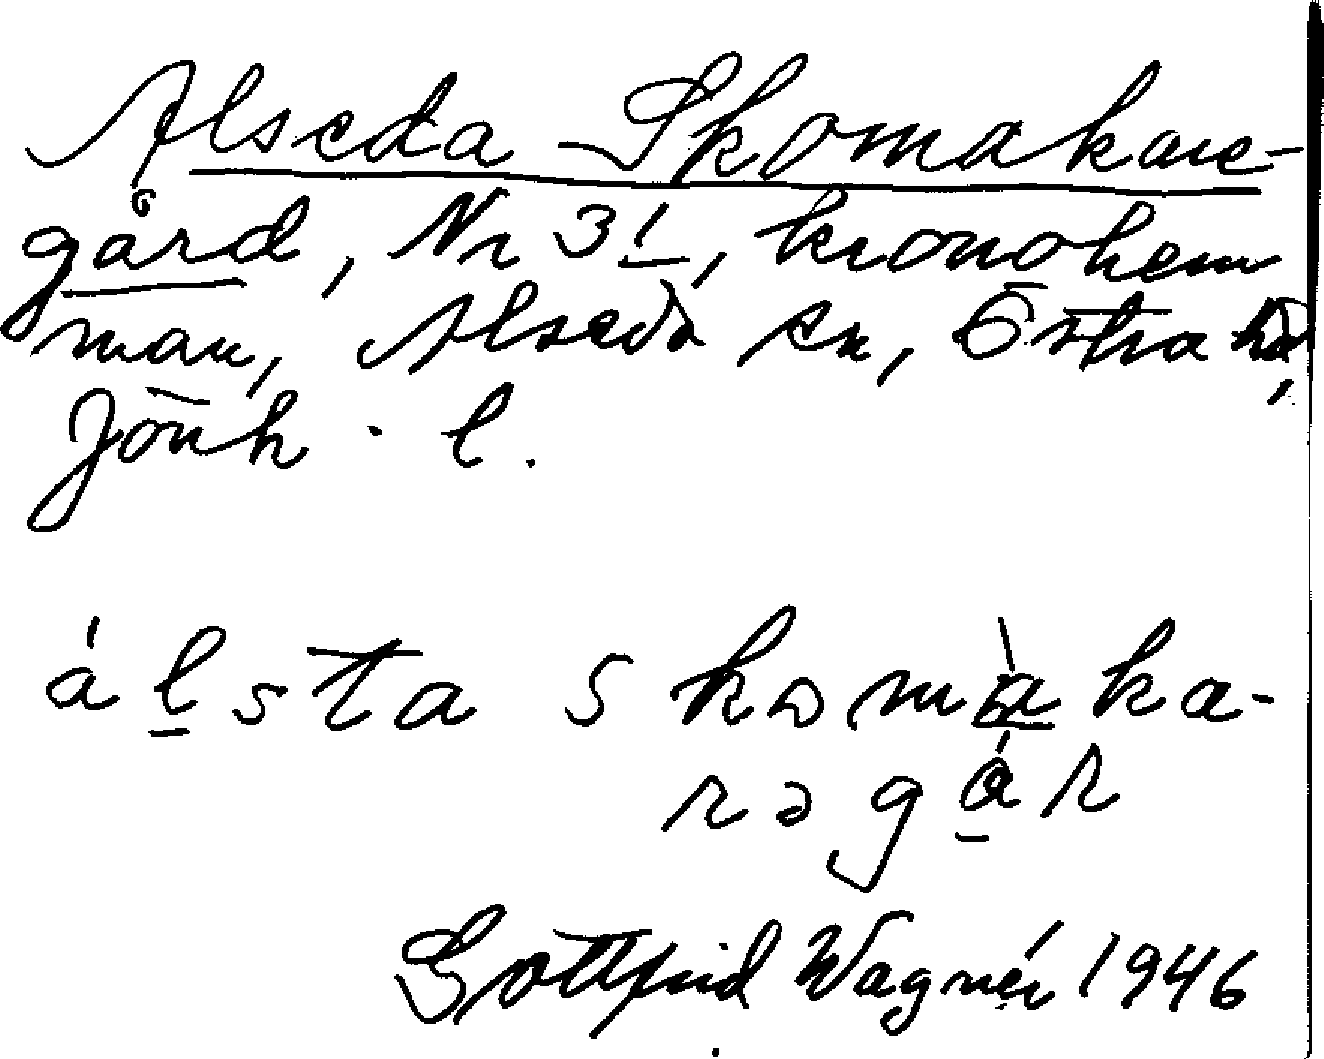 Alseda Skomakare-
gård, Nr 31, kronohem
man, Alseda sn, Östra hd,
Jönk. l.
álsta skomàka-
rəgár
Gottfrid Wagnér 1946